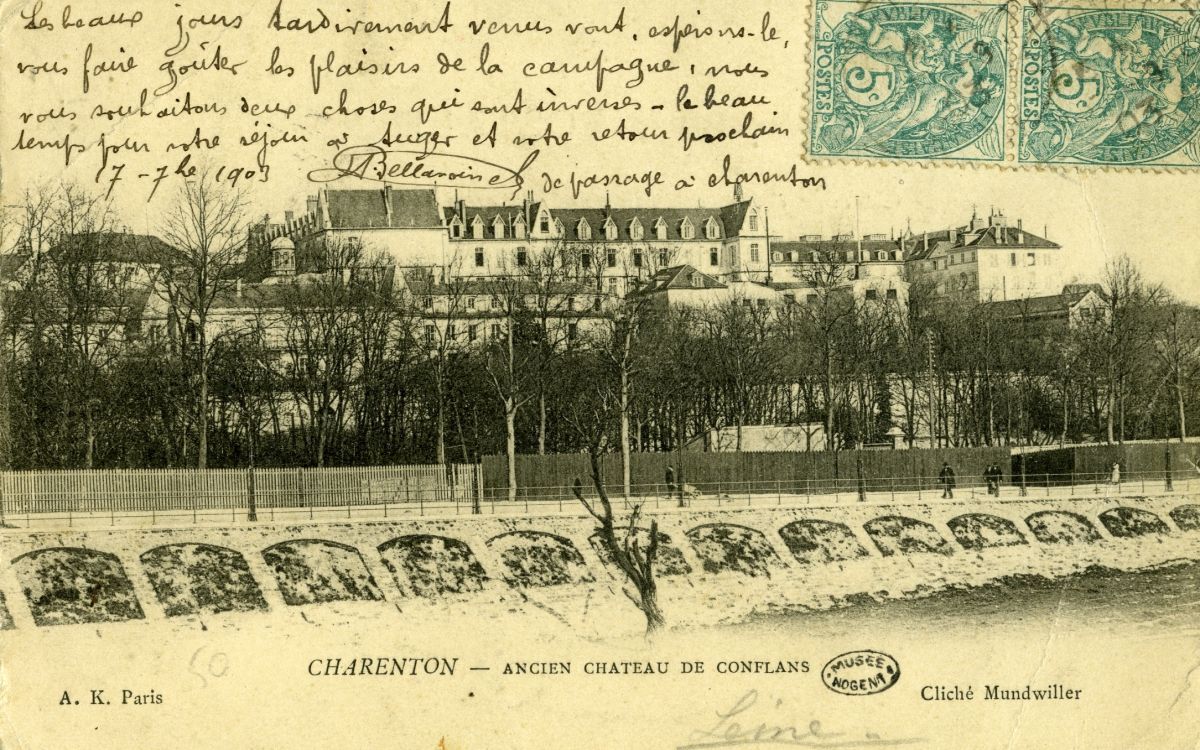 Les beaux jours tardivement venus vont, espérons-le,
vous faire goûter les plaisirs de la campagne, nous
vous souhaitons deux choses qui sont inverses - le beau
temps pour votre séjour à Auger et votre retour prochain
7 - 7bre 1903
de passage à charenton
POSTES 5c
POSTES 5c
CHARENTON — ANCIEN CHATEAU DE CONFLANS
MUSÉE NOGENT
A. K. Paris
Cliché Mundwiller
50
Seine